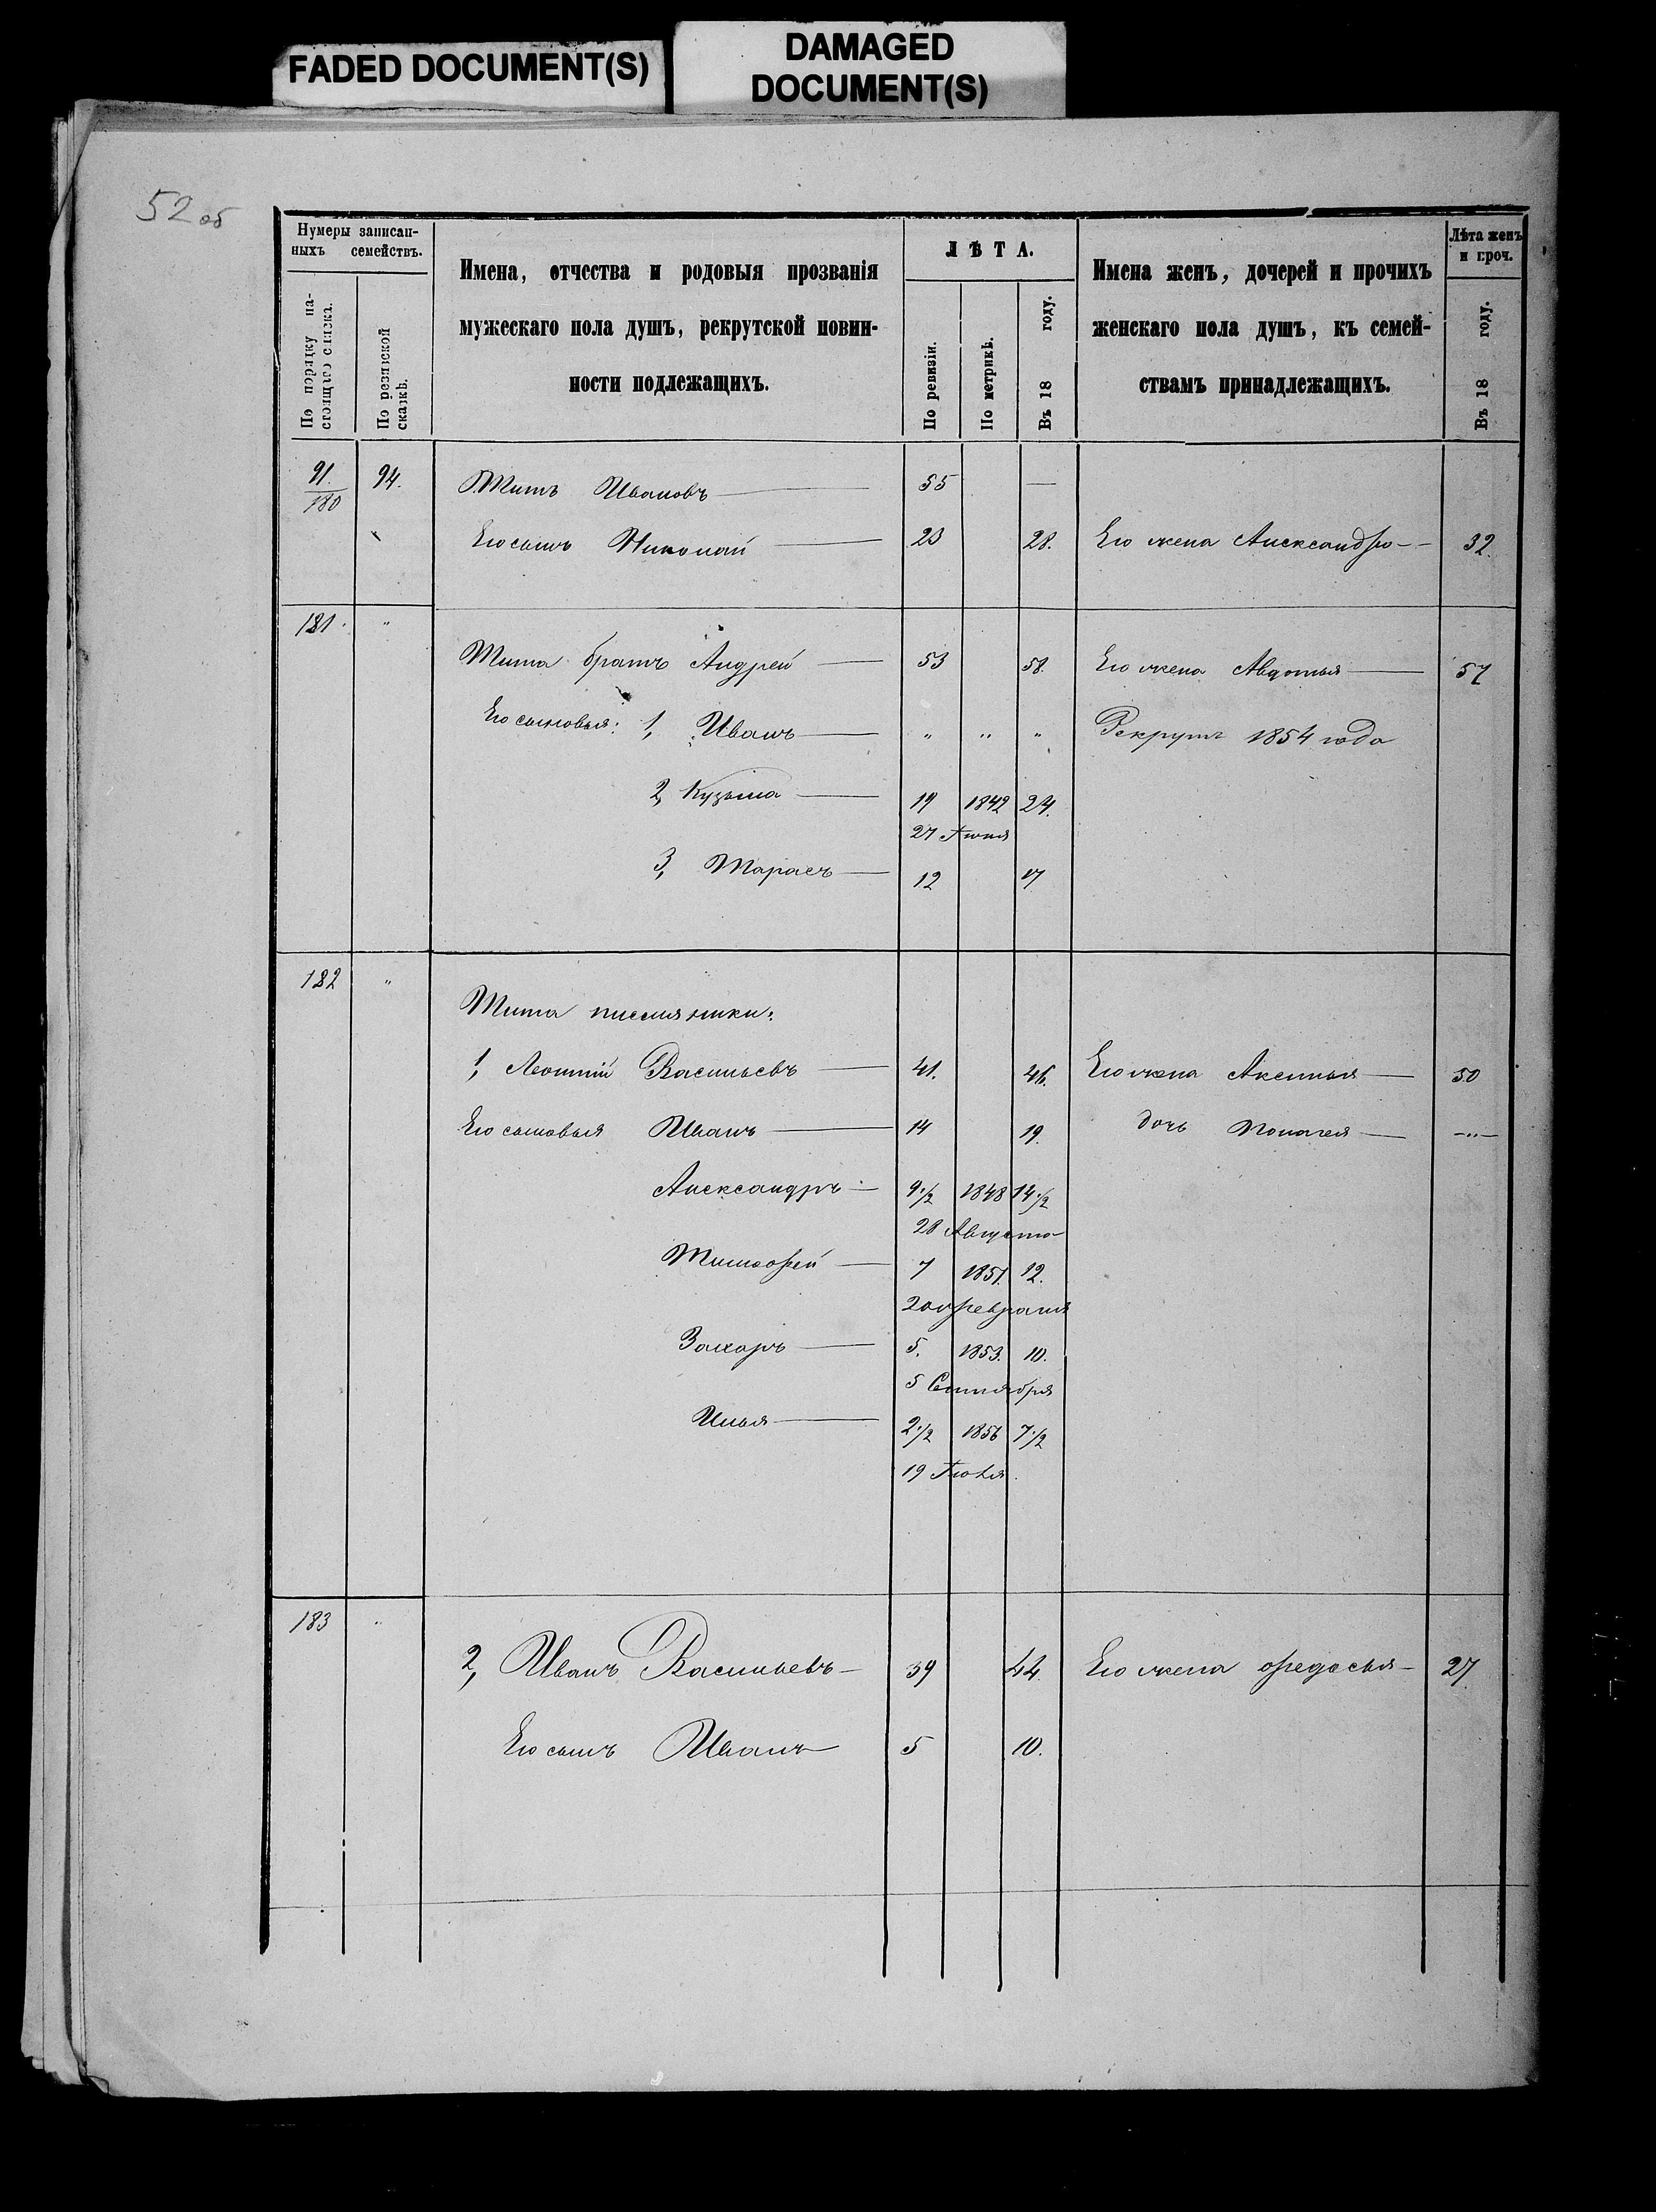 FADED DOCUMENT(S)
DAMAGED
DOCUMENT(S)
52 об
Нумеры записан-
ныхъ семействъ.
По порядку на-
стоящаго списка.
По ревизской
сказкѣ.
Имена, отчества и родовыя прозванія
мужескаго пола душъ, рекрутской повин-
ности подлежащихъ.
ЛѢТА.
По ревизіи.
По метрикѣ.
Въ 18 году.
Имена женъ, дочерей и прочихъ
женскаго пола душъ, къ семей-
ствамъ принадлежащихъ.
Лѣта женъ
и проч.
Въ 18 году.
91. 94. Титъ Ивановъ 55 —
180
Его сынъ Николай 23 28. Его жена Александра 32.
181. " Тита братъ Андрей 53 58. Его жена Авдотья 57
Его сыновья: 1, Иванъ " " " Рекрутъ 1854 года
2, Кузьма 19 1842 24.
27 Іюня
3, Тарасъ 12 17
182 "
Тита племянники:
1, Леонтій Васильевъ 41. 46. Его жена Аксинья 50
Его сыновья Иванъ 14 19. дочь Полагея —"—
Александръ 9 1/2 1848 14 1/2
28 Августа
Тимофей 7 1851. 12.
20 февраля
Захаръ 5. 1853. 10.
5 Сентября
Илья 2 1/2 1856 7 1/2
19 Іюля
183 "
2, Иванъ Васильевъ 39 44. Его жена федосья 27.
Его сынъ Иванъ 5 10.